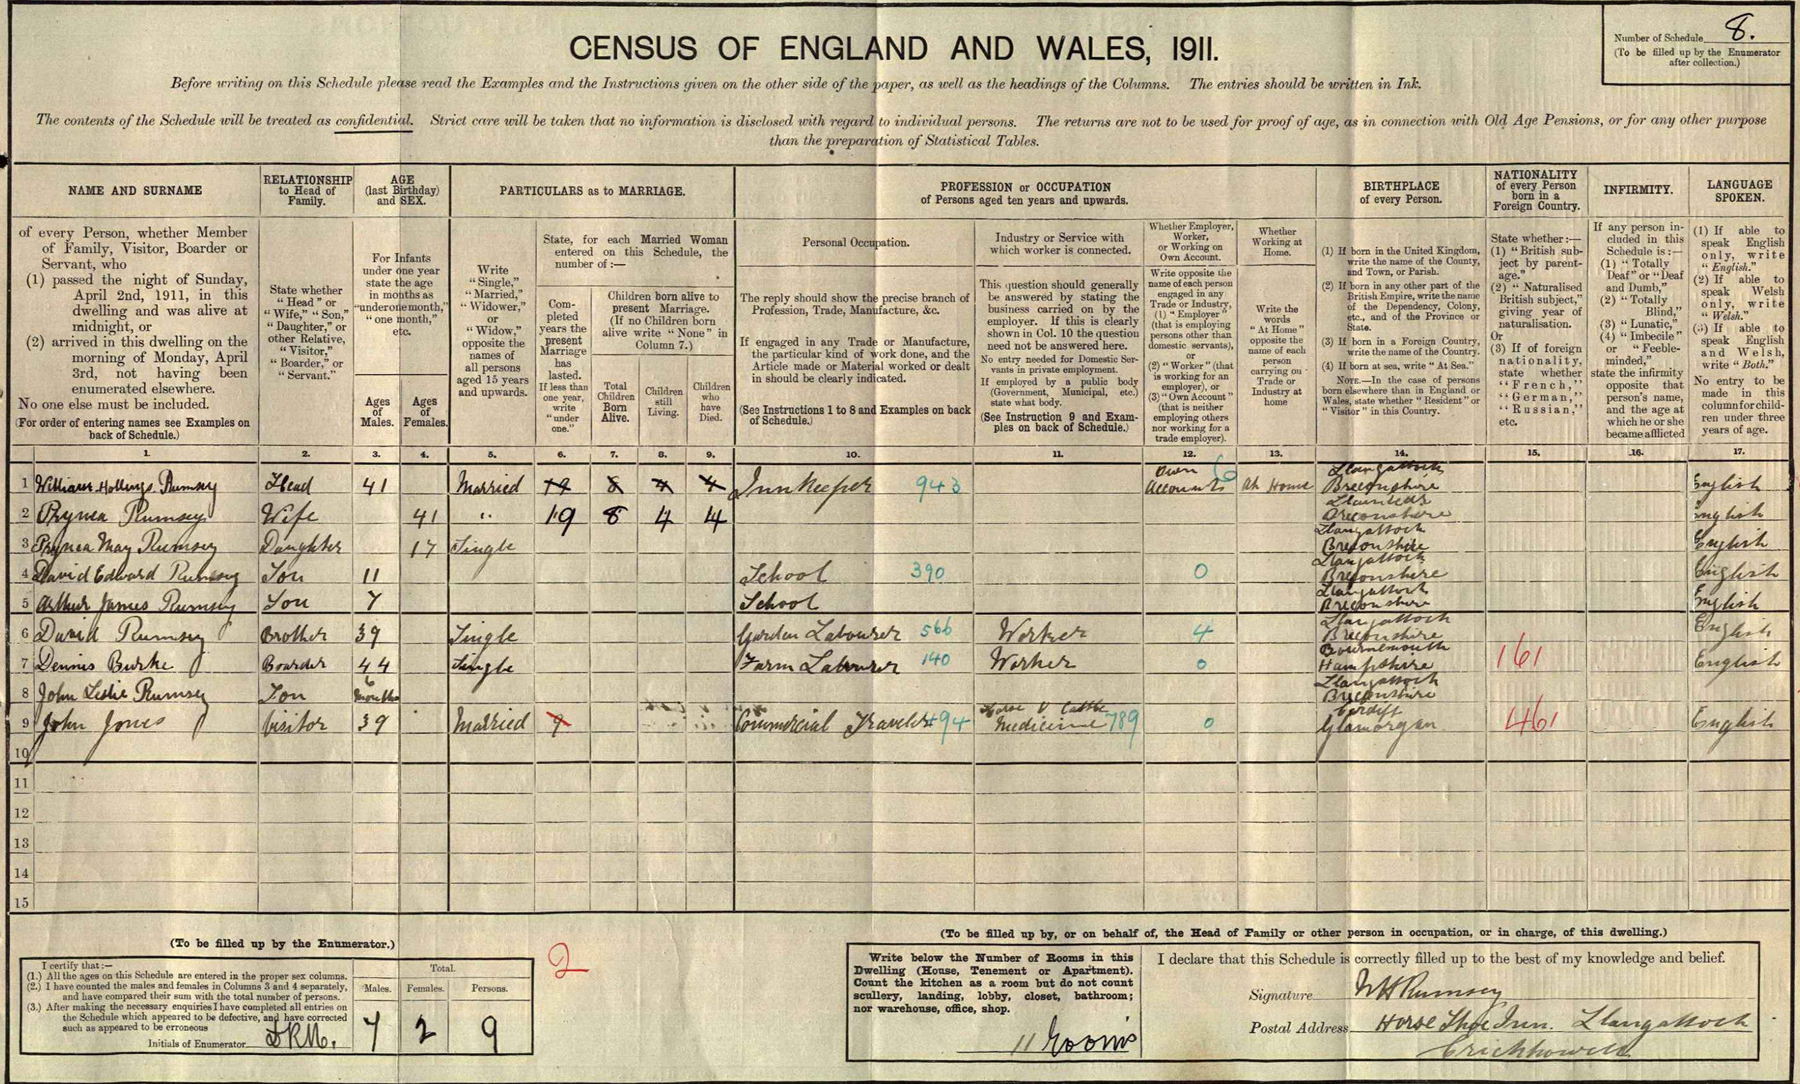 Number of Schedule 8.
(To be filled up by the Enumerator
after collection.)
CENSUS OF ENGLAND AND WALES, 1911.
Before writing on this Schedule please read the Examples and the Instructions given on the other side of the paper, as well as the headings of the Columns. The entries should be written in Ink.
The contents of the Schedule will be treated as confidential. Strict care will be taken that no information is disclosed with regard to individual persons. The returns are not to be used for proof of age, as in connection with Old Age Pensions, or for any other purpose
than the preparation of Statistical Tables.
NAME AND SURNAME
of every Person, whether Member
of Family, Visitor, Boarder or
Servant, who
(1) passed the night of Sunday,
April 2nd, 1911, in this
dwelling and was alive at
midnight, or
(2) arrived in this dwelling on the
morning of Monday, April
3rd, not having been
enumerated elsewhere.
No one else must be included.
(For order of entering names see Examples on
back of Schedule.)
RELATIONSHIP
to Head of
Family.
State whether
"Head," or
"Wife," "Son,"
"Daughter," or
other Relative,
"Visitor,"
"Boarder," or
"Servant."
AGE
(last Birthday)
and SEX.
For Infants
under one year
state the age
in months as
"under one month,"
"one month,"
etc.
Ages
of
Males.
Ages
of
Females.
PARTICULARS as to MARRIAGE.
Write
"Single,"
"Married,"
"Widower,"
or
"Widow,"
opposite the
names of
all persons
aged 15 years
and upwards.
State, for each Married Woman
entered on this Schedule, the
number of:—
Completed
years the
present
Marriage
has
lasted.
If less than
one year,
write
"under
one."
Children born alive to
present Marriage.
(If no Children born
alive write "None" in
Column 7.)
Total
Children
Born
Alive.
Children
still
Living.
Children
who
have
Died.
PROFESSION or OCCUPATION
of Persons aged ten years and upwards.
Personal Occupation.
The reply should show the precise branch of
Profession, Trade, Manufacture, &c.
If engaged in any Trade or Manufacture,
the particular kind of work done, and the
Article made or Material worked or dealt
in should be clearly indicated.
(See Instructions 1 to 8 and Examples on back
of Schedule.)
Industry or Service with
which worker is connected.
This question should generally
be answered by stating the
business carried on by the
employer. If this is clearly
shown in Col. 10 the question
need not be answered here.
No entry needed for Domestic Servants
in private employment.
If employed by a public body
(Government, Municipal, etc.)
state what body.
(See Instruction 9 and Examples
on back of Schedule.)
Whether Employer,
Worker,
or Working on
Own Account.
Write opposite the
name of each person
engaged in any
Trade or Industry,
(1) "Employer"
(that is employing
persons other than
domestic servants),
or
(2) "Worker" (that
is working for an
employer), or
(3) "Own Account"
(that is neither
employing others
nor working for a
trade employer).
Whether
Working at
Home.
Write the
words
"At Home"
opposite the
name of each
person
carrying on
Trade or
Industry at
home
BIRTHPLACE
of every Person.
(1) If born in the United Kingdom,
write the name of the County,
and Town, or Parish.
(2) If born in any other part of the
British Empire, write the name
of the Dependency, Colony,
etc., and of the Province or
State.
(3) If born in a Foreign Country,
write the name of the Country.
(4) If born at sea, write "At Sea."
NOTE.—In the case of persons
born elsewhere than in England or
Wales, state whether "Resident" or
"Visitor" in this Country.
NATIONALITY
of every Person
born in a
Foreign Country.
State whether:—
(1) "British subject
by parentage."
(2) "Naturalised
British subject,"
giving year of
naturalisation.
Or
(3) If of foreign
nationality,
state whether
"French,"
"German,"
"Russian,"
etc.
INFIRMITY.
If any person included
in this
Schedule is:—
(1) "Totally
Deaf" or "Deaf
and Dumb,"
(2) "Totally
Blind,"
(3) "Lunatic,"
(4) "Imbecile"
or "Feeble-
minded,"
state the infirmity
opposite that
person's name,
and the age at
which he or she
became afflicted
LANGUAGE
SPOKEN.
(1) If able to
speak English
only, write
"English."
(2) If able to
speak Welsh
only, write
"Welsh."
(3) If able to
speak English
and Welsh,
write "Both."
No entry to be
made in this
column for children
under three
years of age.
1. 2. 3. 4. 5. 6. 7. 8. 9. 10. 11. 12. 13. 14. 15. 16. 17.
1 William Hollings Rumsey Head 41 Married 19 8 4 4 Innkeeper 943 Own Accounts 6 At Home Llangattock Breconshire English
2 Prynea Rumsey Wife 41 " 19 8 4 4 Breconshire English
3 Prynea May Rumsey Daughter 17 Single Llangattock Breconshire English
4 David Edward Rumsey Son 11 School 390 0 Llangattock Breconshire English
5 Arthur James Rumsey Son 7 School Llangattock Breconshire English
6 David Rumsey Brother 39 Single Garden Labourer 566 Worker 4 Llangattock Breconshire English
7 Dennis Burke Boarder 44 Single Farm Labourer 140 Worker 0 Bournemouth Hampshire 161 English
8 John Leslie Rumsey Son 6 months Llangattock Breconshire
9 John Jones Visitor 39 Married 9 Commercial Traveler 494 Horse & Cattle Medicine 789 0 Cardiff Glamorgan 461 English
10
11
12
13
14
15
(To be filled up by the Enumerator.)
I certify that:—
(1.) All the ages on this Schedule are entered in the proper sex columns.
(2.) I have counted the males and females in Columns 3 and 4 separately,
and have compared their sum with the total number of persons.
(3.) After making the necessary enquiries I have completed all entries on
the Schedule which appeared to be defective, and have corrected
such as appeared to be erroneous
Initials of Enumerator
Total.
Males. Females. Persons.
7 2 9
2
(To be filled up by, or on behalf of, the Head of Family or other person in occupation, or in charge, of this dwelling.)
Write below the Number of Rooms in this
Dwelling (House, Tenement or Apartment).
Count the kitchen as a room but do not count
scullery, landing, lobby, closet, bathroom;
nor warehouse, office, shop.
11 Rooms
I declare that this Schedule is correctly filled up to the best of my knowledge and belief.
Signature WH Rumsey
Postal Address Horse Shoe Inn. Llangattock
Crickhowell